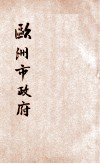 歐洲市政府